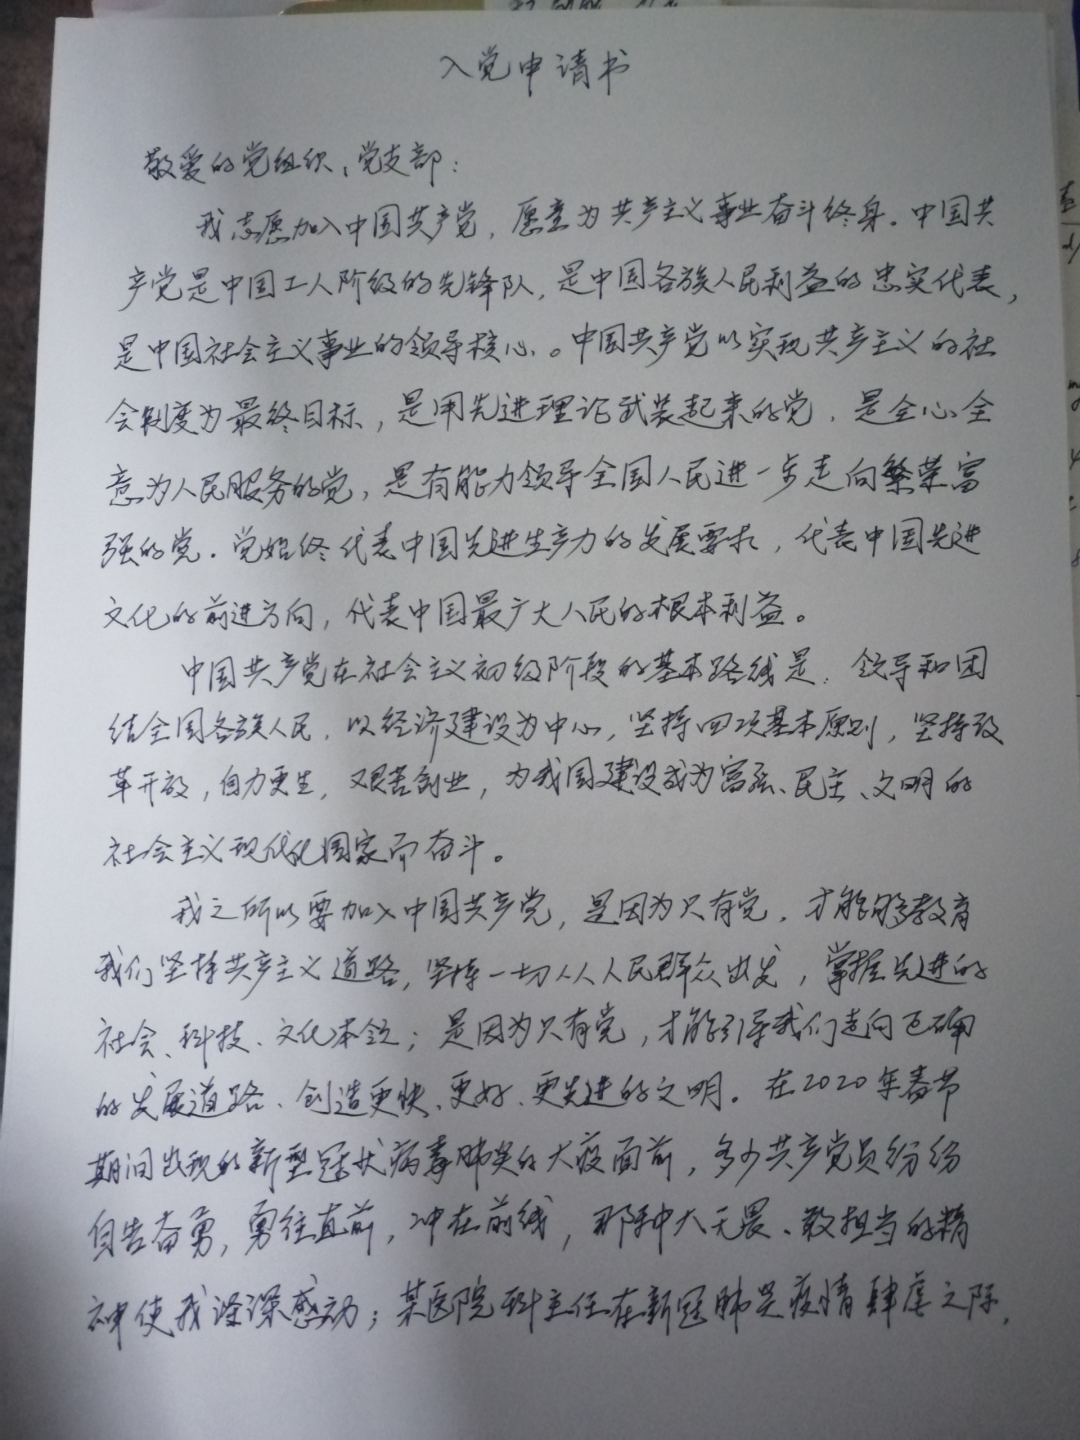 入党申请书
敬爱的党组织、党支部：
我志愿加入中国共产党，愿意为共产主义事业奋斗终身。中国共
产党是中国工人阶级的先锋队，是中国各族人民利益的忠实代表，
是中国社会主义事业的领导核心。中国共产党以实现共产主义的社
会制度为最终目标，是用先进理论武装起来的党，是全心全
意为人民服务的党，是有能力领导全国人民进一步走向繁荣富
强的党。党始终代表中国先进生产力的发展要求，代表中国先进
文化的前进方向，代表中国最广大人民的根本利益。
中国共产党在社会主义初级阶段的基本路线是：领导和团
结全国各族人民，以经济建设为中心，坚持四项基本原则，坚持改
革开放，自力更生，艰苦创业，为我国建设成为富强、民主、文明的
社会主义现代化国家而奋斗。
我之所以要加入中国共产党，是因为只有党，才能够教育
我们坚持共产主义道路，坚持一切从人民群众出发，掌握先进的
社会、科技、文化本领；是因为只有党，才能引导我们走向正确
的发展道路、创造更快、更好、更先进的文明。在2020年春节
期间出现的新型冠状病毒肺炎的大疫面前，多少共产党员纷纷
自告奋勇，勇往直前，冲在前线，那种大无畏、敢担当的精
神使我深深感动；某医院科主任在新冠肺炎疫情肆虐之际，